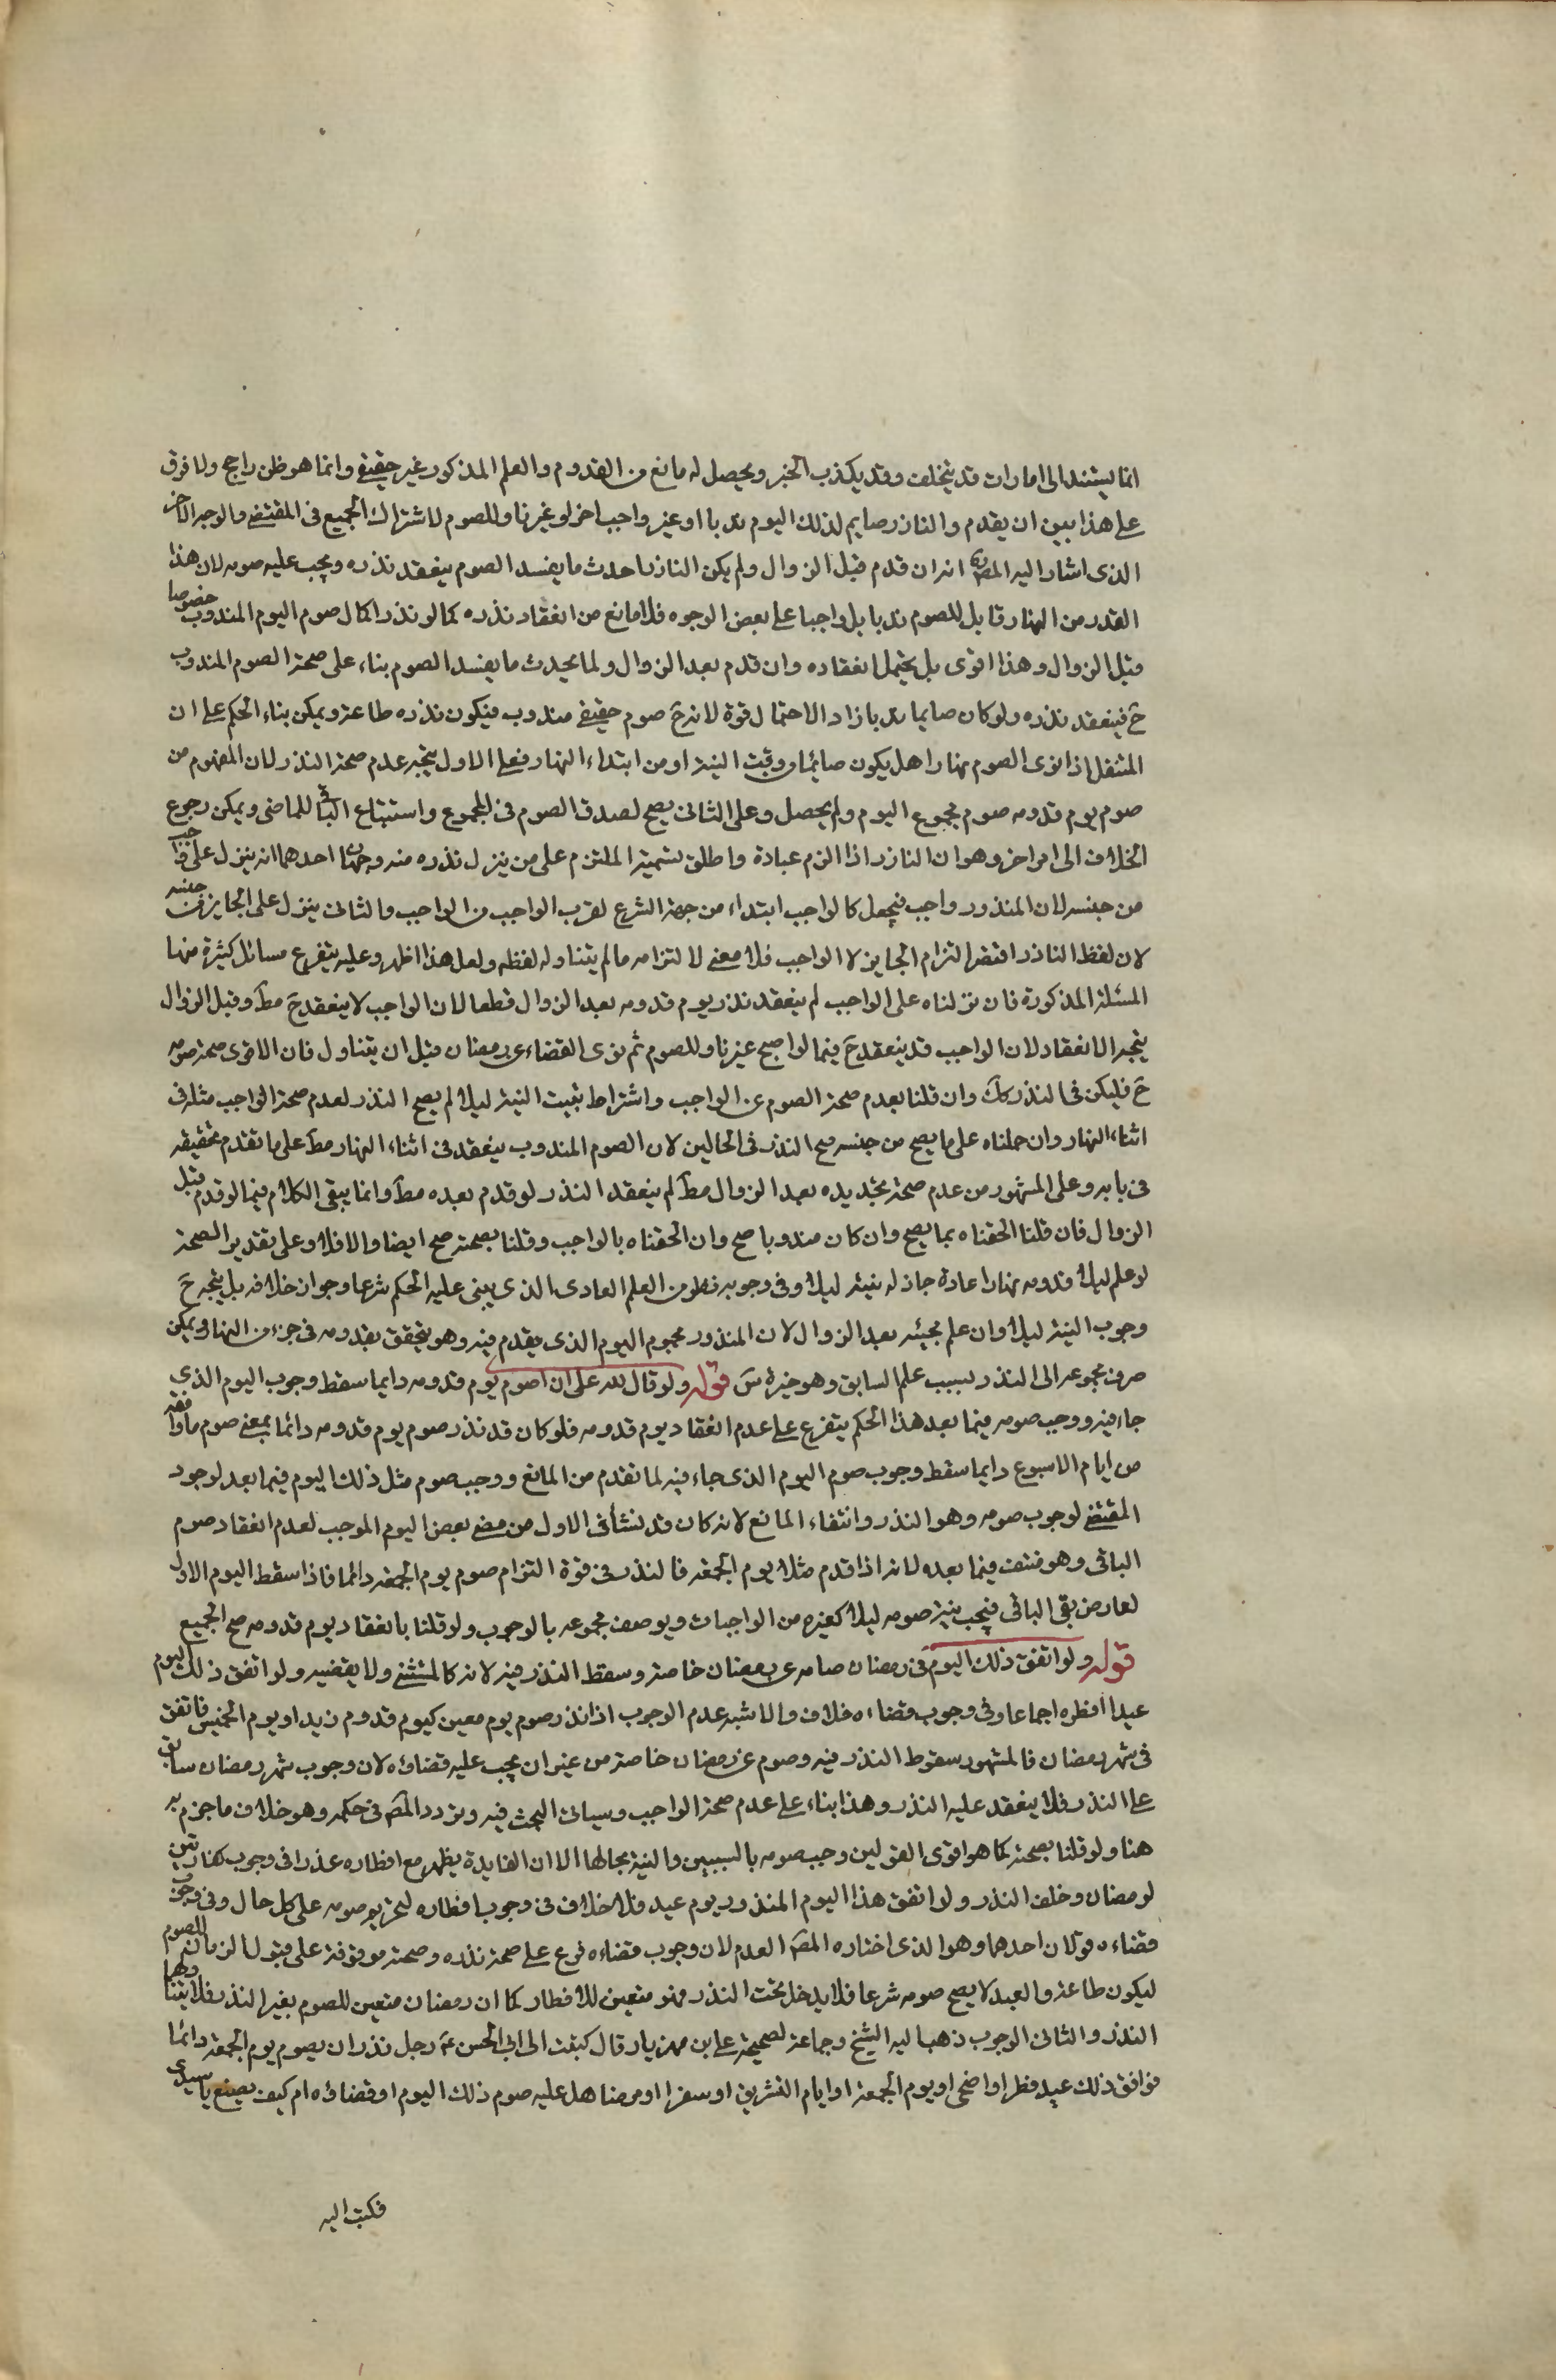 انما يستند الى امارات قد يتخلف وقد يكذب الخبر ويحصل له مانع من القدوم والعلم المذكور غير حقيقى وانما هو ظن راجح ولا فرق
على هذا بين ان يقدم والناذر صايم لذلك اليوم ندبا او غير واجب اخر او غير ناو للصوم لاشتراك الجميع فى المقتضى والوجه الاخر
الذى اشار اليه المصره انه ان قدم قبل الزوال ولم يكن الناذر احدث ما يفسد الصوم ينعقد نذره ويجب عليه صومه لان هذا
القدر من النهار قابل للصوم ندبا بل واجبا على بعض الوجوه فلا مانع من انعقاد نذره كما لو نذر اكمال صوم اليوم المندوب خصوصا
قبل الزوال وهذا اقوى بل يحتمل انعقاده وان قدم بعد الزوال ولما يحدث ما يفسد الصوم بناء على صحة الصوم المندوب
ح فينعقد نذره ولو كان صايما ندبا زاد الاحتمال قوة لانه ح صوم حقيقى مندوب فيكون نذره طاعة ويمكن بناء الحكم على ان
المتنفل اذا نوى الصوم نهارا هل يكون صائما من وقت النية او من ابتداء النهار فعلى الاول يتجه عدم صحة النذر لان المفهوم من
صوم يوم قدومه صوم مجموع اليوم ولم يحصل وعلى الثانى يصح لصدق الصوم فى المجموع واستتباع الباقى للماضى ويمكن رجوع
الخلاف الى امر اخر وهو ان الناذر اذا التزم عبادة واطلق تسمية الملتزم على من ينزل نذره منه وجهان احدهما انه ينزل على واجب
من جنسه لان المنذور واجب فيجعل كالواجب ابتداء من جهة الشرع لقرب الواجب من الواجب والثانى ينزل على الجايز من جنسه
لان لفظ الناذر اقتضى التزام الجايز لا الواجب فلا معنى لالتزامه ما لم يتناوله لفظه ولعل هذا اظهر وعليه يتفرع مسائل كثيرة منها
المسئلة المذكورة فان نزلناه على الواجب لم ينعقد نذر يوم قدومه بعد الزوال قطعا لان الواجب لا ينعقد ح مط وقبل الزوال
يتجه الانعقاد لان الواجب قد ينعقد ح فيما لو اصبح غير ناو للصوم ثم نوى القضاء عن رمضان قبل ان يتناول فان الاقوى صحة صومه
ح فليكن فى النذر كك وان قلنا بعدم صحة الصوم عن الواجب واشتراط تبييت النية ليلا لم يصح النذر لعدم صحة الواجب مثله فى
اثناء النهار وان حملناه على ما يصح من جنسه صح النذر فى الحالين لان الصوم المندوب ينعقد فى اثناء النهار مط على ما تقدم تحقيقه
فى بابه وعلى المشهور من عدم صحة تجديده بعد الزوال مط لم ينعقد النذر لو قدم بعده مط وانما يبقى الكلام فيما لو قدم قبل
الزوال فان قلنا الحقناه بما يصح وان كان مندوبا صح وان الحقناه بالواجب وقلنا بصحته صح ايضا والا فلا وعلى تقدير الصحة
لو علم ليلا قدومه نهارا عادة جاز له نيته ليلا وفى وجوبه نظر من العلم العادى الذى يبنى عليه الحكم شرعا وجواز خلافه بل يتجه ح
وجوب النية ليلا وان علم مجيئه بعد الزوال لان المنذور مجموع اليوم الذى يقدم فيه وهو يتحقق بقدومه فى جزء من النهار ويمكن
صرف مجموعه الى النذر بسبب علم السابق وهو خيرة س قوله ولو قال لله على ان اصوم يوم قدومه دايما سقط وجوب اليوم الذى
جاء فيه ووجب صومه فيما بعد هذا الحكم يتفرع على عدم انعقاد يوم قدومه فلو كان قد نذر صوم يوم قدومه دائما بمعنى صوم ما وافقه
من ايام الاسبوع دايما سقط وجوب صوم اليوم الذى جاء فيه لما تقدم من المانع ووجب صوم مثل ذلك اليوم فيما بعد لوجود
المقتضى لوجوب صومه وهو النذر وانتفاء المانع لانه كان قد نشأ فى الاول من مضى بعض اليوم الموجب لعدم انعقاد صوم
الباقى وهو منتف فيما بعده لانه اذا قدم مثلا يوم الجمعة فالنذر فى قوة التزام صوم يوم الجمعة دائما فاذا سقط اليوم الاول
لعارض بقى الباقى فيجب نية صومه ليلا كغيره من الواجبات ويوصف مجموعه بالوجوب ولو قلنا بانعقاد يوم قدومه صح الجميع
قوله ولو اتفق ذلك اليوم فى رمضان صامه عن رمضان خاصة وسقط النذر فيه لانه كالمستثنى ولا يقضيه ولو اتفق ذلك اليوم
عيدا افطره اجماعا وفى وجوب قضاءه خلاف والاشبه عدم الوجوب اذا نذر صوم يوم معين كيوم قدوم زيد او يوم الخميس فاتفق
فى شهر رمضان فالمشهور سقوط النذر فيه وصوم عن رمضان خاصة من غير ان يجب عليه قضاؤه لان وجوب شهر رمضان سابق
على النذر فلا ينعقد عليه النذر وهذا بناء على عدم صحة الواجب وسياتى البحث فيه وتردد المص فى حكمه وهو خلاف ما جزم به
هنا ولو قلنا بصحته كما هو اقوى القولين وجب صومه بالسببين والنية بحالها الا ان الفايدة يظهر مع افطاره عذرا فى وجوب كفارتين
لرمضان وخلف النذر ولو اتفق هذا اليوم المنذور يوم عيد فلا خلاف فى وجوب افطاره لتحريم صومه على كل حال وفى وجوب
قضاءه قولان احدهما وهو الذى اختاره المص العدم لان وجوب قضاءه فرع على صحة نذره وصحته موقوفة على قبول الزمان للصوم
ليكون طاعة والعيد لا يصح صومه شرعا فلا يدخل تحت النذر فهو متعين للافطار كما ان رمضان متعين للصوم بغير النذر فلا يتناولهما
النذر والثانى الوجوب ذهب اليه الشيخ وجماعة لصحيحة على بن مهزيار قال كتبت الى ابى الحسن ع رجل نذر ان يصوم يوم الجمعة دائما
فوافق ذلك عيد فطر او اضحى او يوم الجمعة او ايام التشريق او سفرا او مرضا هل عليه صوم ذلك اليوم او قضاؤه ام كيف يصنع يا سيدى
فكتب اليه